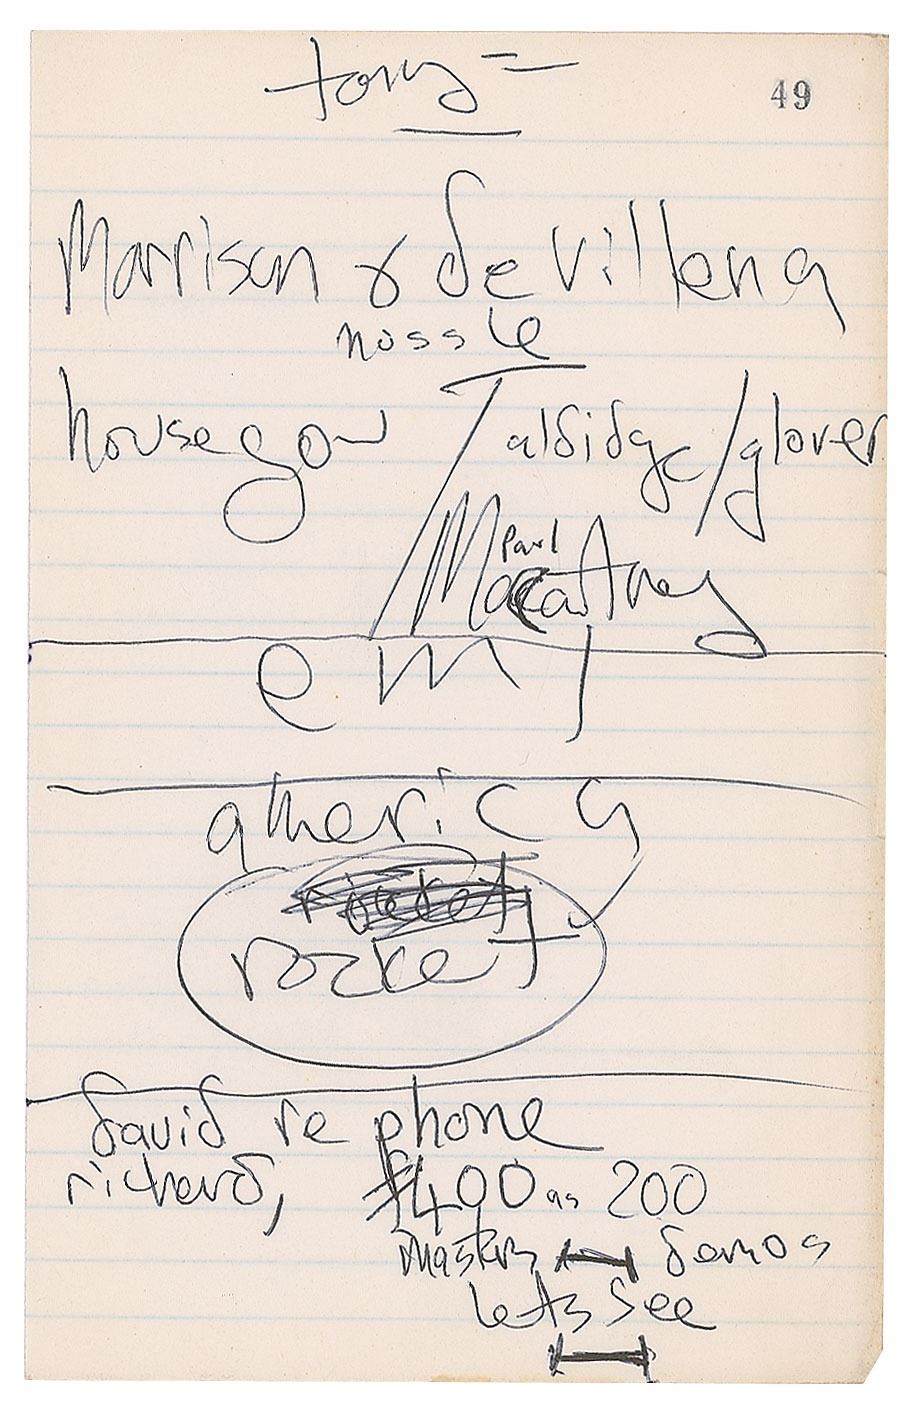 tony =
49
Marrison & de Villena
nossle
housegow / aldidge/glover
Paul
Maccartney
emj
america
rocket
david re phone
richard, £400 as 200
masters — demos
lets see